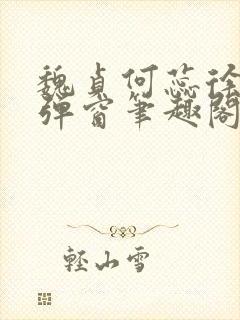 魏貞何蕊徐
彈窗筆趣閣
輕山雪